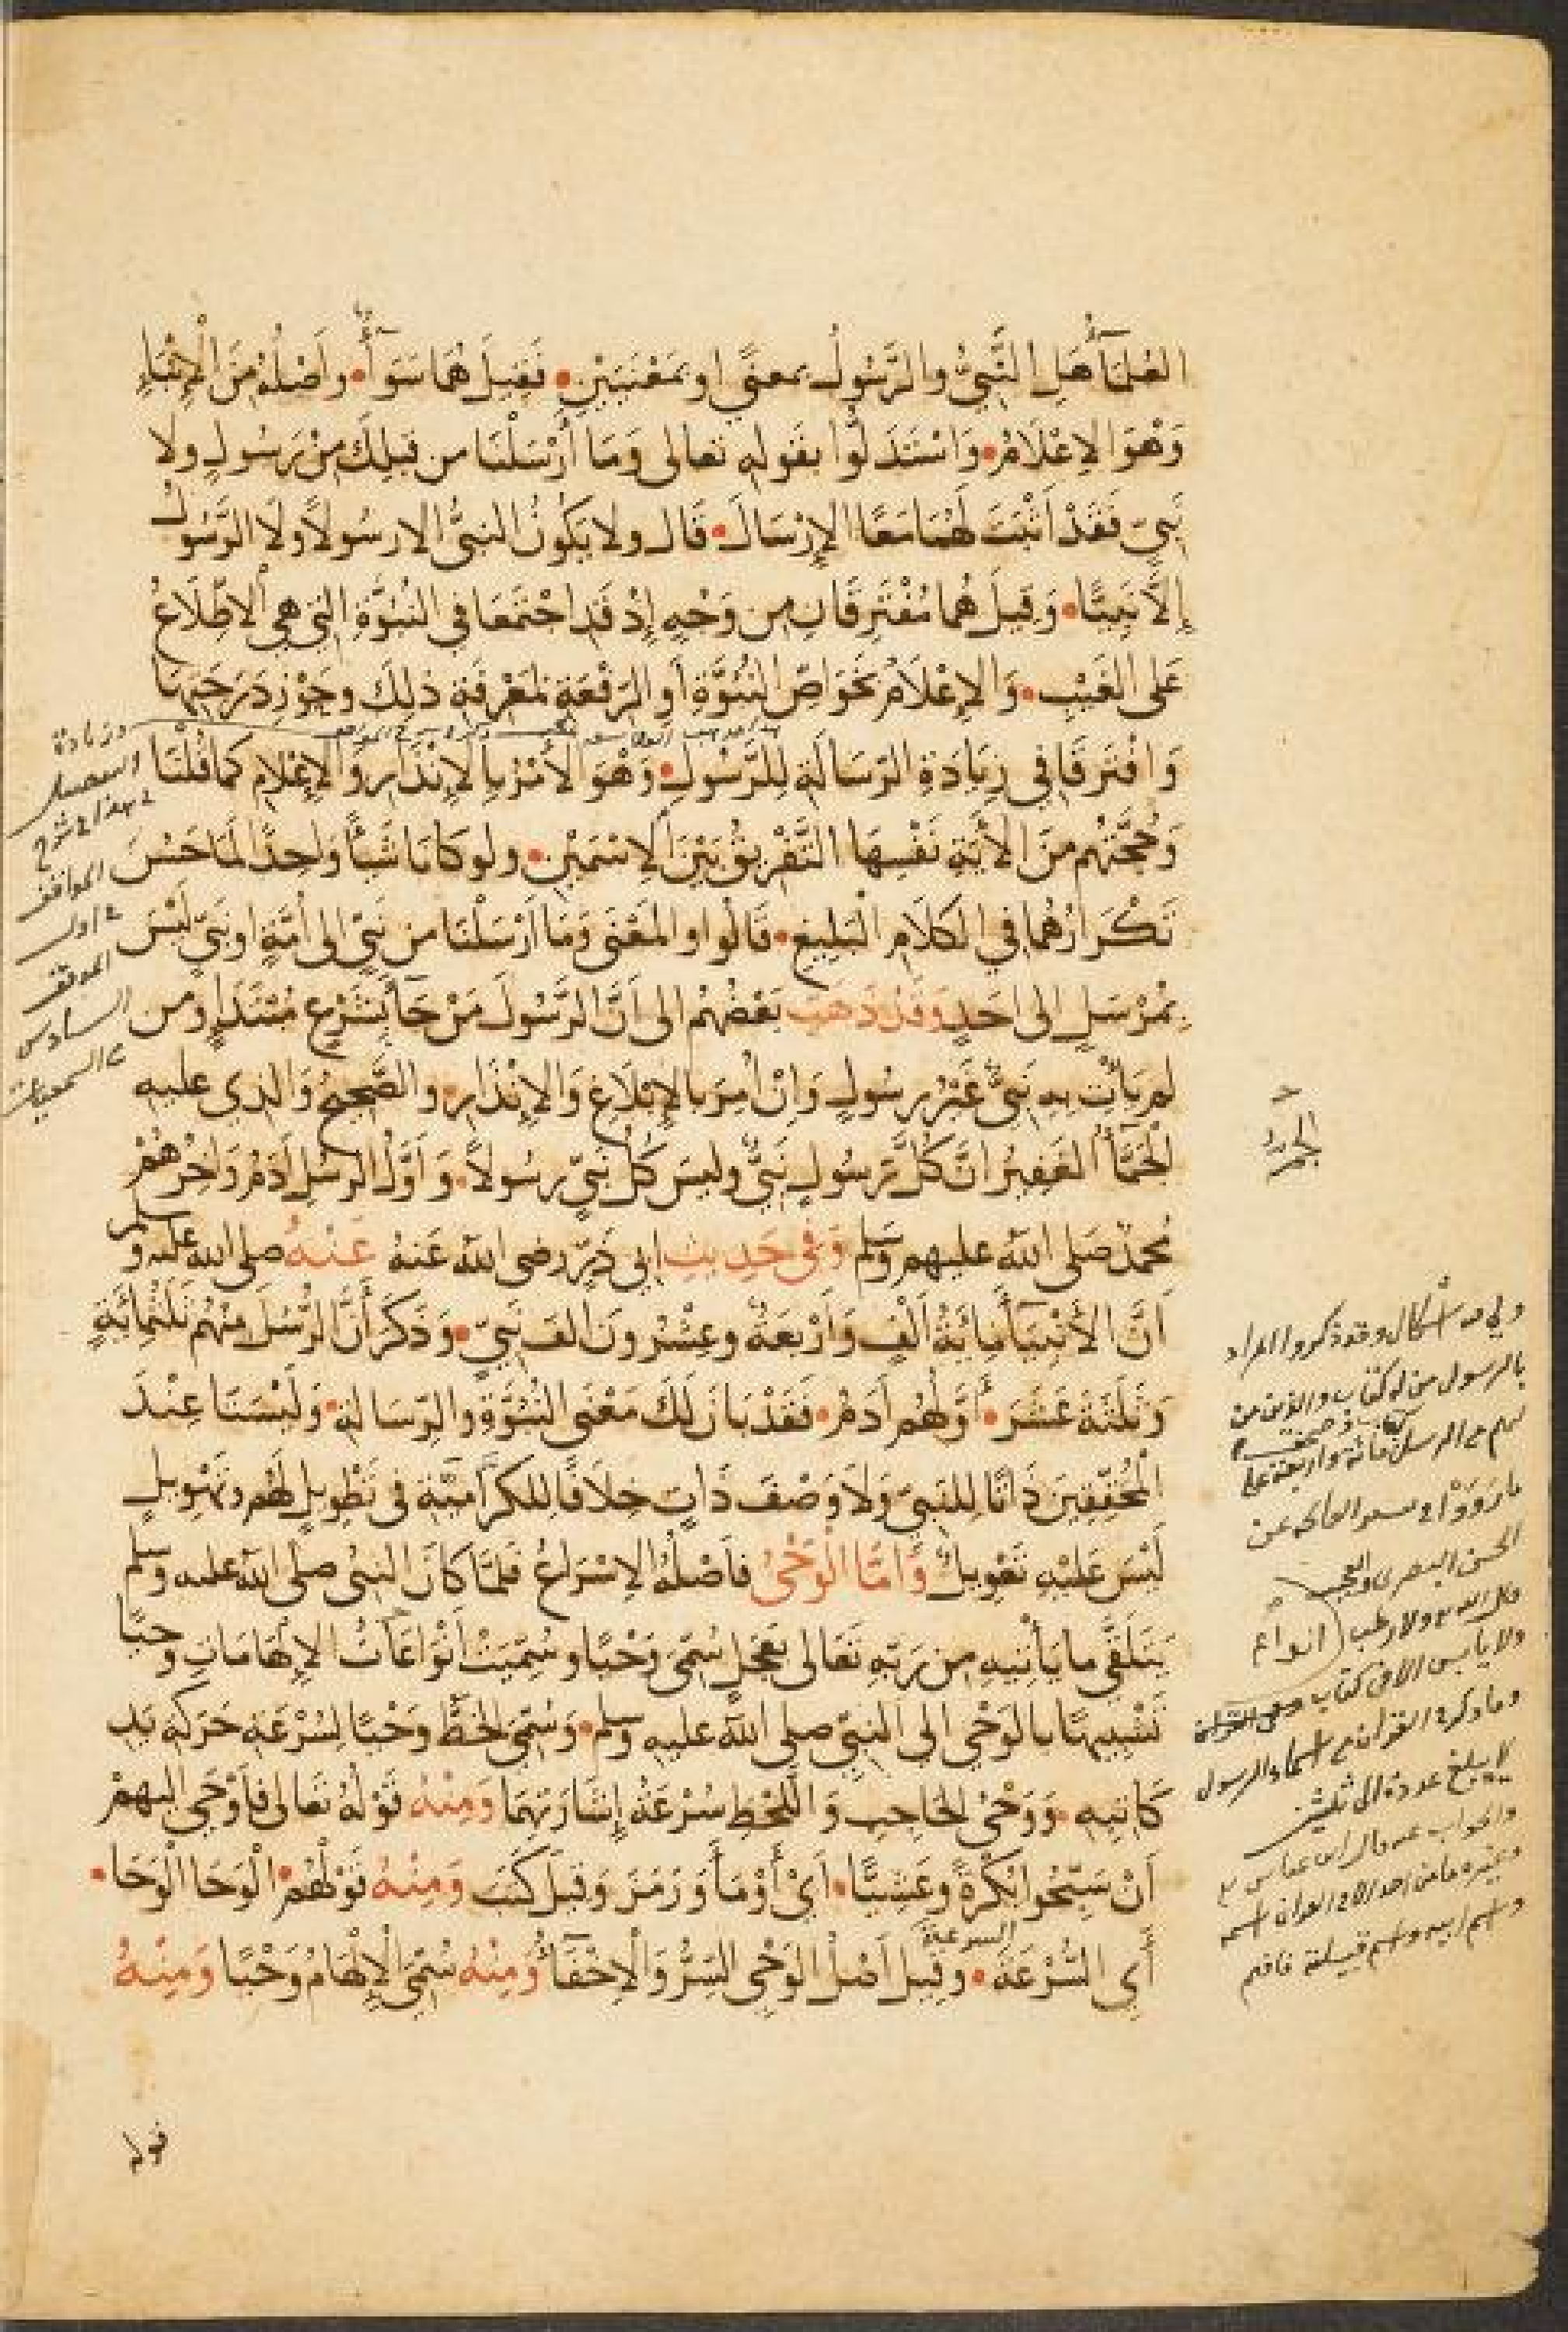 العُلَمَآءُ هَلِ النَّبِيُّ والرَّسُولُ بمعنًى او بمَعْنَيَيْنِ • فَقِيلَ هُمَا سَوَآءٌ • وأَصْلُهُ مِنَ الْإِنْبَاءِ
وَهُوَ الإِعْلَامُ • وَاسْتَدَلُّوا بقَولِهِ تعالى وَمَا أَرْسَلْنَا من قبلِكَ مِنْ رَسُولٍ ولا
نَبِيٍّ فَقَدْ أَثْبَتَ لَهُمَا مَعًا الإِرْسَالَ • قَال ولا يَكُونُ النبيُّ الا رسُولًا ولَا الرَّسُولُ
إِلَّا نَبِيًّا • وَقِيلَ هُمَا مُفْتَرِقَانِ مِن وَجْهٍ إِذْ قَدِ اجْتَمَعَا في النُّبُوَّةِ التي هي الاطِّلَاعُ
عَلى الغَيْبِ • وَالإِعْلَامُ بخَوَاصِّ النُّبُوَّةِ أَوِ الرِّفْعَةِ لمَعْرِفَةِ ذلِكَ وحَوْزِ دَرَجَتِهَا
وَافْتَرَقَا في زِيَادَةِ الرِّسَالَةِ لِلرَّسُولِ • وَهُوَ الأَمْرُ بِالإِنْذَارِ وَالإِعْلَامِ كمَا قُلْنَا
وَحُجَّتُهُم مِنَ الآيَةِ نَفْسِهَا التَّفْرِيقُ بَيْنَ الاسْمَيْنِ • ولو كَانَا شَيْئًا وَاحِدًا لَمَا حَسُنَ
تَكْرَارُهُمَا في الكَلَامِ الْبَلِيغِ • قَالُوا والمَعْنَى وَمَا أَرْسَلْنَا من نَبِيٍّ الى أُمَّةٍ او نَبِيٍّ لَيْسَ
بمُرْسَلٍ الى احَدٍ وَقَدْ ذَهَبَ بَعْضُهُمْ الى أَنَّ الرَّسُولَ مَنْ جَآءَ بِشَرْعٍ مُبْتَدَإٍ ومن
لم يَأْتِ بِهِ نَبِيٌّ غَيْرُ رسُولٍ وَانْ أُمِرَ بالإِبْلَاغِ وَالإِنْذَارِ • والصَّحِيحُ وَالذي عليه
الْجَمَّآءُ الغَفِيرُ انَّ كُلَّ رسُولٍ نَبِيٌّ وليسَ كُلُّ نَبِيٍّ رسُولًا • وَاوَّلُ الرسُلِ آدَمُ وَآخِرُهُمْ
مُحَمدٌ صَلى اللهُ عليهم وسلم وَفي حَدِيثِ ابي ذَرٍّ رضى اللهُ عَنهُ عَنْهُ صلى الله عليه وسلم
أَنَّ الأَنْبِيَآءَ مِائَةُ أَلْفٍ وَأَرْبَعَةٌ وعِشْرُونَ الفَ نَبِيٍّ • وَذَكَرَ أَنَّ الرُّسُلَ مِنْهُمْ ثَلَثُمِائَةٍ
وَثَلَثَةَ عَشَرَ • أَوَّلُهُم آدَمُ • فَقَدْ بَانَ لَكَ مَعْنَى النُّبُوَّةِ والرِّسَالَةِ • وَلَيْسَتَا عِنْدَ
الْمُحَقِّقِينَ ذَاتًا لِلنبيِّ وَلَا وَصْفَ ذَاتٍ خِلَافًا للكرَّامِيَّةِ في تَطْوِيلٍ لَهُم وتَهْوِيلٍ
لَيْسَ عَلَيْهِ تَعْوِيلٌ وَأَمَّا الْوَحْيُ فَأَصْلُهُ الإِسْرَاعُ فَلَمَّا كَانَ النبيُّ صلى الله عليه وسلم
يَتَلَقَّى ما يَأْتِيهِ مِن رَبِّهِ تَعَالى بعَجَلٍ سُمِّيَ وَحْيًا وسُمِّيَتْ أَنْوَاعُ الإِلْهَامَاتِ وحيًا
تَشْبِيهًا بالوَحْيِ الى النبيِّ صلى الله عليه وسلم • وَسُمِّيَ الخَطُّ وَحْيًا لِسُرْعَةِ حَرَكَةِ يَدِ
كَاتِبِهِ • وَوَحْيُ الحَاجِبِ وَاللَّحْظِ سُرْعَةُ إِشَارَتِهِمَا وَمِنْهُ قَوْلُهُ تَعَالى فأَوْحَى اليهِمْ
أَنْ سَبِّحُوا بُكْرَةً وَعَشِيًّا • أَيْ أَوْمَأَ وَرَمَزَ وَقِيلَ كَتَبَ وَمِنْهُ قَوْلُهُم • الْوَحَا الْوَحَا •
أَي السُّرْعَةَ السرعة • وقِيلَ أَصْلُ الوَحْيِ السِّرُّ وَالْإِخْفَآءُ وَمِنْهُ سُمِّيَ الْإِلْهَامُ وَحْيًا وَمِنْهُ
قوله
وزيادة
التفصيل
في هذا في شرح
المواقف
في اول
الموقف
السادس
في السمعيات
الجمّ
وفيه اشكال وقد ذكروا المراد
بالرسول من له كتاب
الحسن البصرى
والا يابس الا فى كتاب